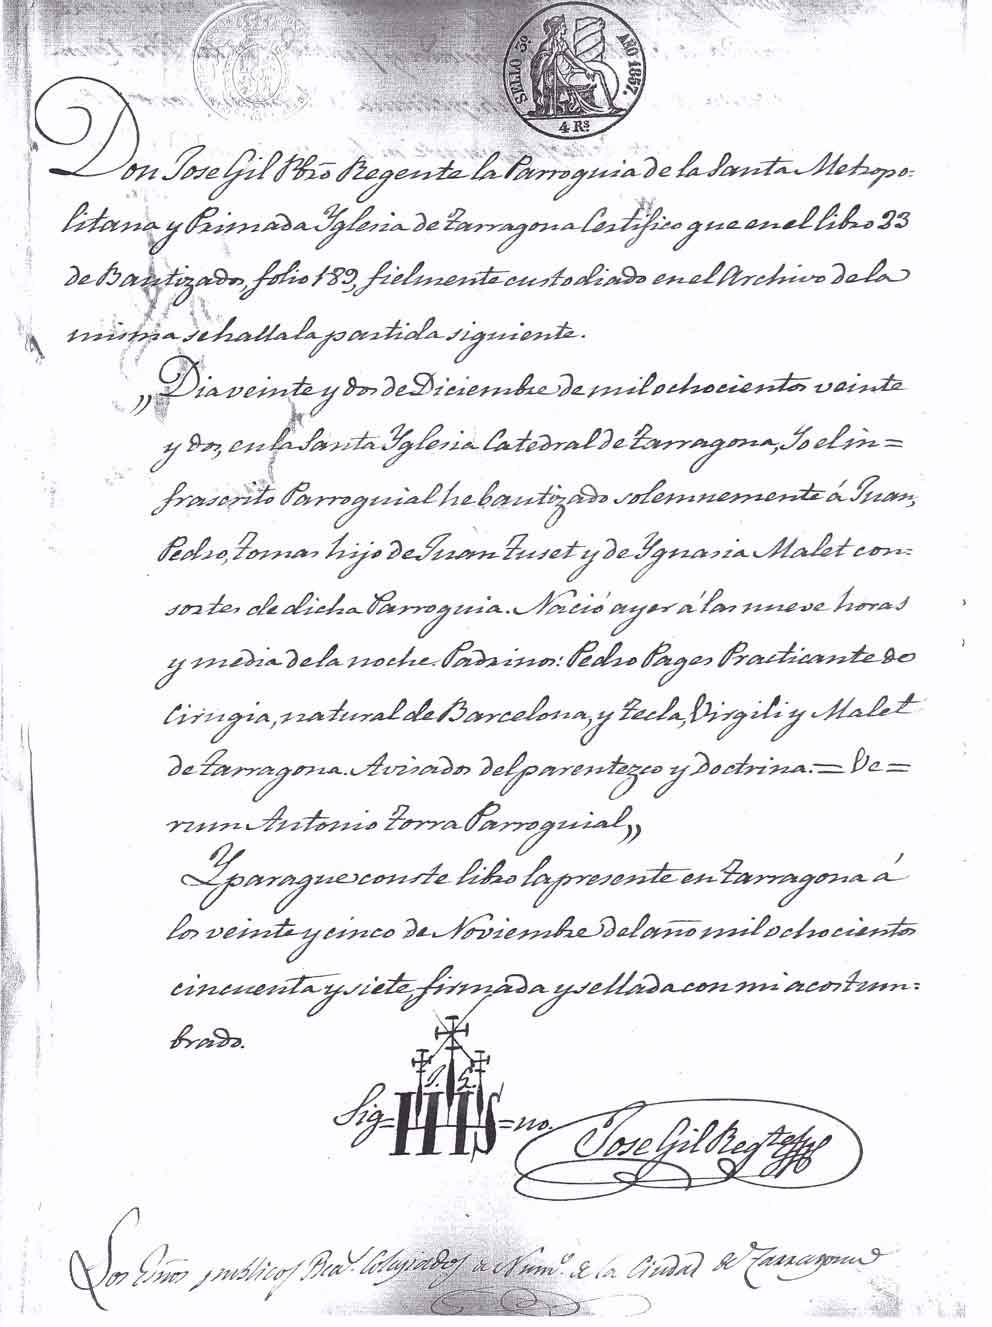 SELLO 3º AÑO 1857.
4 Rs
Don Jose Gil Pbrõ Regente la Parroquia de la Santa Metropo-
litana y Primada Yglesia de Tarragona Certifico que en el libro 23
de Bautizados, folio 189, fielmente custodiado en el Archivo de la
misma se halla la partida siguiente.
„Dia veinte y dos de Diciembre de mil ochocientos veinte
y dos, en la Santa Yglesia Catedral de Tarragona, Yo el in=
frascrito Parroquial he bautizado solemnemente á Juan,
Pedro, Tomas hijo de Juan Fuset y de Ygnasia Malet con-
sortes de dicha Parroquia. Nació ayer á las nueve horas
y media de la noche. Padrinos: Pedro Pages Practicante de
Cirugia, natural de Barcelona, y Tecla, Virgili y Malet
de Tarragona. Avisados del parentezco y Doctrina.= Ve=
rum Antonio Torra Parroquial„
Y para que conste libro la presente en Tarragona á
los veinte y cinco de Noviembre del año mil ochocientos
cincuenta y siete, firmada y sellada con mi acostum-
brado.
J. G.
Sig=HIS=no.
Jose Gil Regte
Los Esños publicos Rea.s Colegiados de Num.º de la Ciudad de Tarragona